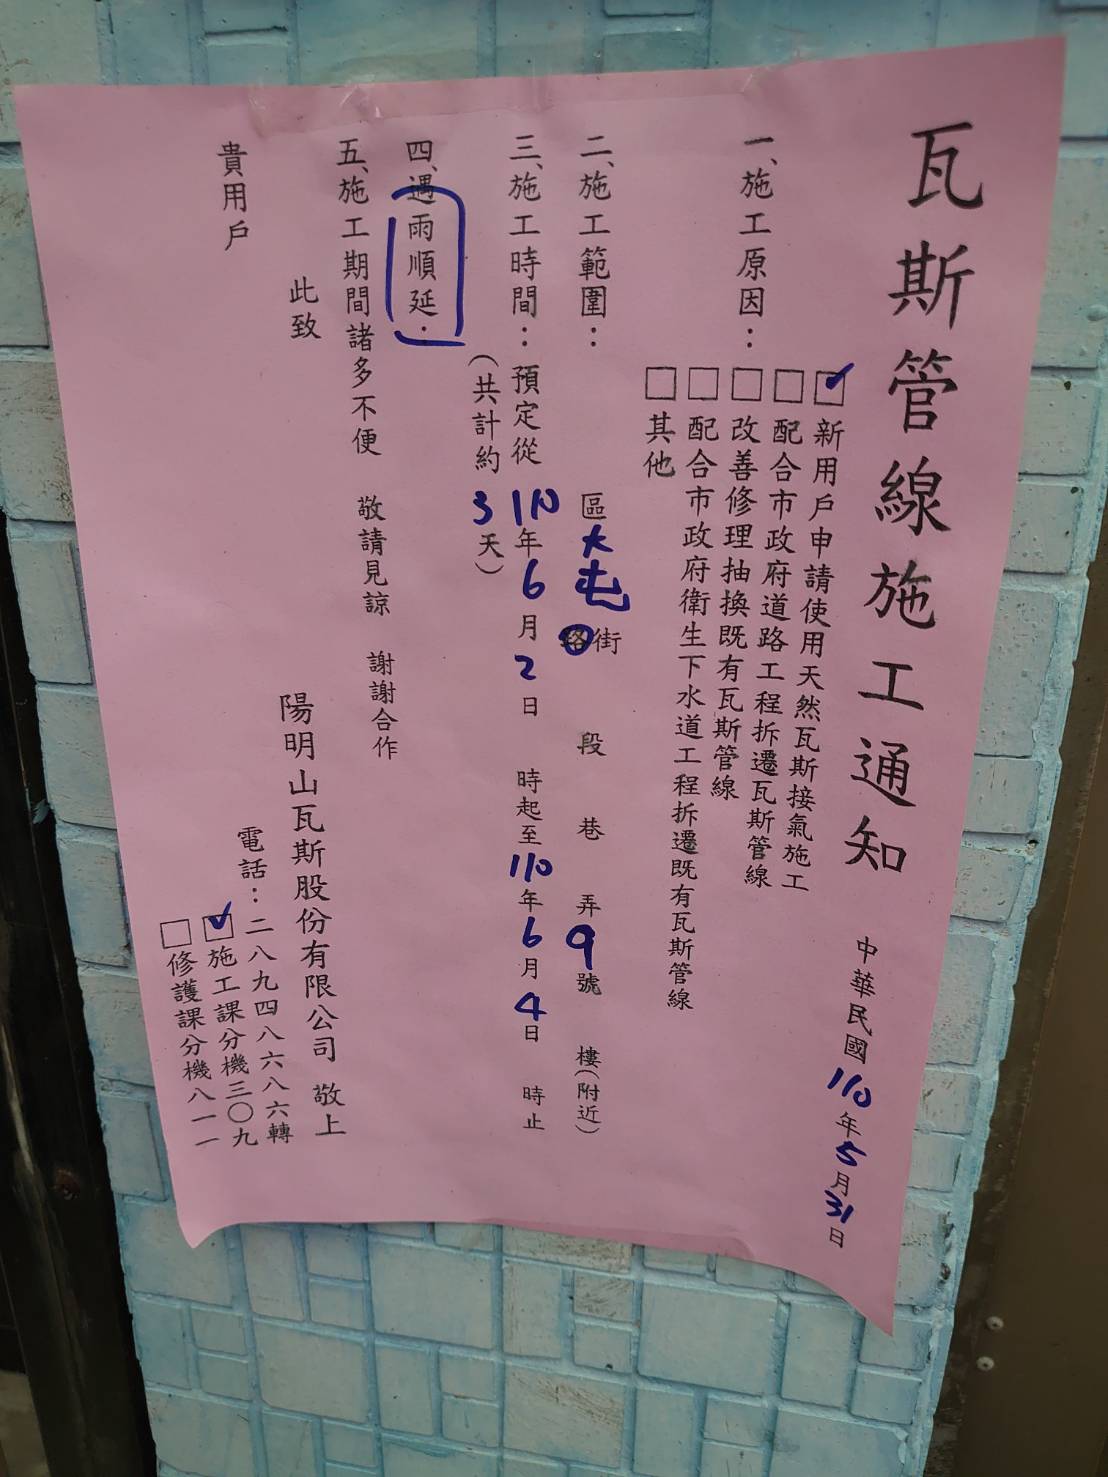 瓦斯管線施工通知
中華民國110年5月31日
一、施工原因：
新用戶申請使用天然瓦斯接氣施工
配合市政府道路工程拆遷瓦斯管線
改善修理抽換既有瓦斯管線
配合市政府衛生下水道工程拆遷既有瓦斯管線
其他
二、施工範圍：
區大屯路街 段 巷 弄9號 樓(附近)
三、施工時間：預定從110年6月2日 時起至110年6月4日 時止
(共計約3天)
四、遇雨順延．
五、施工期間諸多不便 敬請見諒 謝謝合作
此致
貴用戶
陽明山瓦斯股份有限公司 敬上
電話：二八九四八六八六轉
施工課分機三〇九
修護課分機八一一